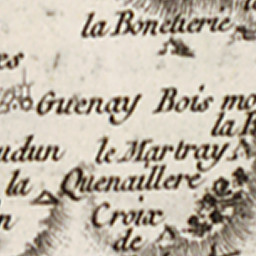 la Bonetterie
es
Guenay Bois mo
la B
udun le Martray
la Quenaillere
n Croix
de